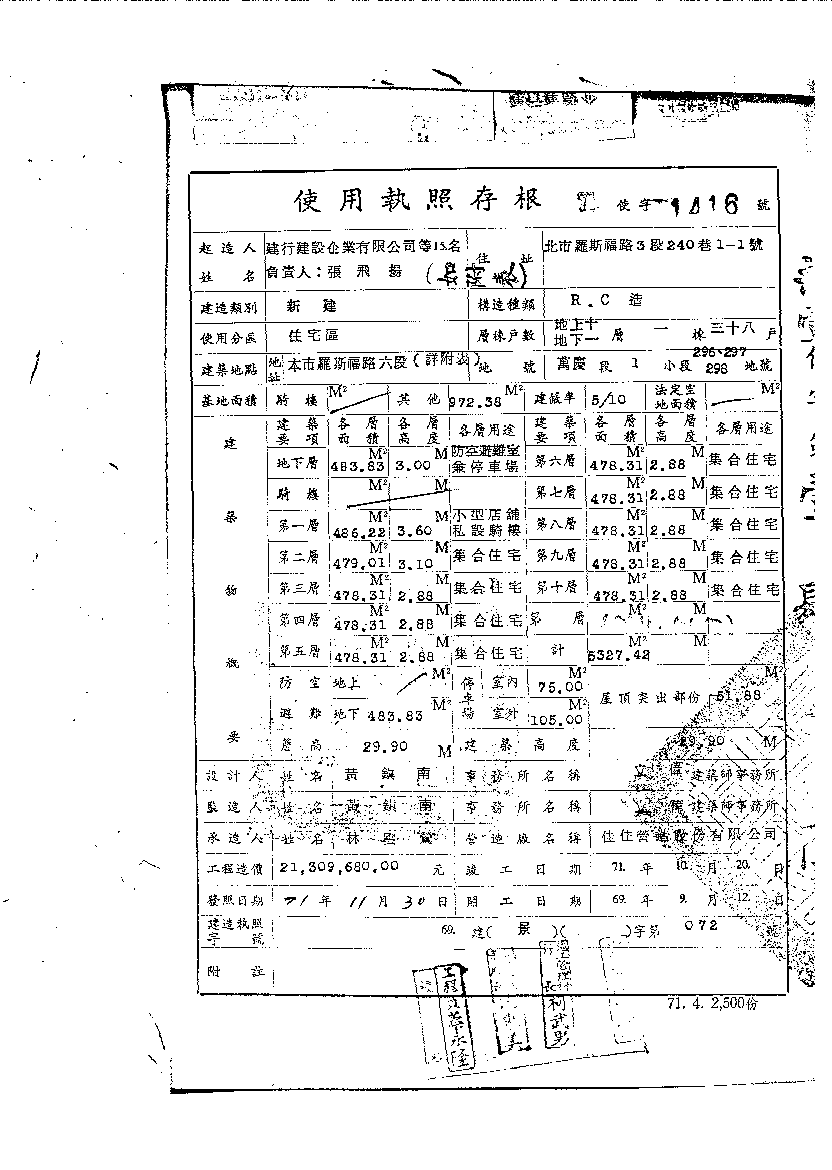 使用執照存根 71 使字 1416 號
起造人姓名 建行建設企業有限公司等15名 負責人：張飛揚 住址 北市羅斯福路3段240巷1-1號
建造類別 新建 構造種類 R.C造
使用分區 住宅區 層棟戶數 地上十地下一層 一棟 三十八戶
建築地點 地址 本市羅斯福路六段(詳附表) 地號 萬慶段 1 小段 296、297 298 地號
基地面積 騎樓 M² 其他 972.38 M² 建蔽率 5/10 法定空地面積 M²
建築物概要
建築要項 各層面積 各層高度 各層用途 建築要項 各層面積 各層高度 各層用途
地下層 483.83 M² 3.00 M 防空避難室兼停車場 第六層 478.31 M² 2.88 M 集合住宅
騎樓 M² M 第七層 478.31 M² 2.88 M 集合住宅
第一層 486.22 M² 3.60 M 小型店舖私設騎樓 第八層 478.31 M² 2.88 M 集合住宅
第二層 479.01 M² 3.10 M 集合住宅 第九層 478.31 M² 2.88 M 集合住宅
第三層 478.31 M² 2.88 M 集合住宅 第十層 478.31 M² 2.88 M 集合住宅
第四層 478.31 M² 2.88 M 集合住宅 第 層 M² M
第五層 478.31 M² 2.88 M 集合住宅 計 5327.42 M² M
防空避難 地上 M² 停車場 室內 75.00 M² 屋頂突出部份 51.88
地下 483.83 M² 室外 105.00 M²
簷高 29.90 M 建築高度 29.90 M
設計人 姓名 黃鎮南 事務所名稱 建築師事務所
監造人 姓名 黃鎮南 事務所名稱 建築師事務所
承造人 姓名 林 營造廠名稱 佳住營造股份有限公司
工程造價 21,309,680.00 元 竣工日期 71. 年 10. 月 20. 日
發照日期 71年 11月 30日 開工日期 69. 年 9. 月 12. 日
建造執照字號 69. 建(景)( )字第 072 號
附註
71. 4. 2,500份